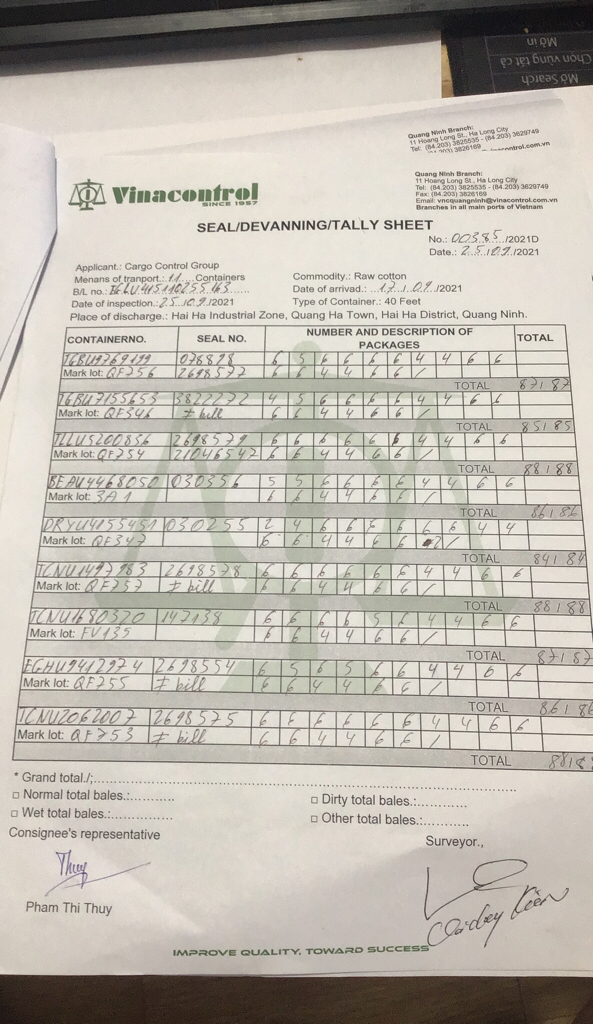 Mở in
Chọn vùng tất cả
Mở Search
Quang Ninh Branch:
11 Hoang Long St., Ha Long City
Tel: (84.203) 3825535 - (84.203) 3629749
3826169
Quang Ninh Branch:
11 Hoang Long St., Ha Long City
Tel: (84.203) 3825535 - (84.203) 3629749
Fax: (84.203) 3826169
Email: vncquangninh@vinacontrol.com.vn
Branches in all main ports of Vietnam
Vinacontrol
SINCE 1957
SEAL/DEVANNING/TALLY SHEET
No.: 00385/2021D
Date.: 25/09/2021
Applicant.: Cargo Control Group
Menans of tranport.: 11 Containers
Commodity.: Raw cotton
B/L no.:
Date of arrivad.: 17/09/2021
Date of inspection.: 25/09/2021
Type of Container.: 40 Feet
Place of discharge.: Hai Ha Industrial Zone, Quang Ha Town, Hai Ha District, Quang Ninh.
CONTAINERNO. SEAL NO. NUMBER AND DESCRIPTION OF PACKAGES TOTAL
6 5 6 6 6 6 4 4 6 6
Mark lot: QF756 2698577 6 6 4 4 6 6 /
TOTAL 87/87
TGBU7155653 3822272 4 5 6 6 6 6 4 4 6 6
Mark lot: QF346 ≠ bill 6 6 4 4 6 6 /
TOTAL 85/85
TLLU5200856 2698579 6 6 6 6 6 6 4 4 6 6
Mark lot: QF754 21046542 6 6 4 4 6 6 /
TOTAL 88/88
BEAU4468050 030356 5 5 6 6 6 6 4 4 6 6
Mark lot: 3A1 6 6 4 4 6 6 /
TOTAL 86/86
DRYU4155451 030255 2 4 6 6 6 6 6 6 4 4
Mark lot: QF347 6 6 4 4 6 6 2/
TOTAL 84/84
TCNU1497983 2698578 6 6 6 6 6 6 4 4 6 6
Mark lot: QF757 ≠ bill 6 6 4 4 6 6 /
TOTAL 88/88
TCNU1680320 147138 6 6 6 6 5 6 4 4 6 6
Mark lot: FV135 6 6 4 4 6 6 /
TOTAL 87/87
EGHU9412974 2698554 6 5 6 5 6 6 4 4 6 6
Mark lot: QF755 ≠ bill 6 6 4 4 6 6 /
TOTAL 86/86
TCNU2062007 2698575 6 6 6 6 6 6 4 4 6 6
Mark lot: QF753 ≠ bill 6 6 4 4 6 6 /
TOTAL 88/8
* Grand total./:
□ Normal total bales.:
□ Dirty total bales.:
□ Wet total bales.:
□ Other total bales.:
Consignee's representative
Surveyor.,
Thuy
Pham Thi Thuy
IMPROVE QUALITY, TOWARD SUCCESS